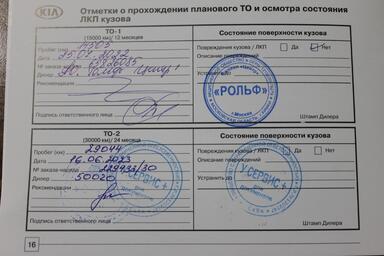 KIA Отметки о прохождении планового ТО и осмотра состояния
ЛКП кузова
ТО-1
(15000 км) / 12 месяцев
Пробег (км) 14505
Дата 25.04.2022
№ заказ-наряда
Дилер
Рекомендации
Подпись ответственного лица
Состояние поверхности кузова
Повреждения кузова / ЛКП Да Нет
Описание повреждений
«РОЛЬФ»
г. Москва
Штамп Дилера
ТО-2
(30000 км) / 24 месяца
Пробег (км) 29044
Дата 16.06.2023
№ заказ-наряда 229933/30
Дилер 50020
Рекомендации
У СЕРВИС +
для документов
Подпись ответственного лица
Состояние поверхности кузова
Повреждения кузова / ЛКП Да Нет
Описание повреждений
У СЕРВИС +
для документов
Штамп Дилера
16